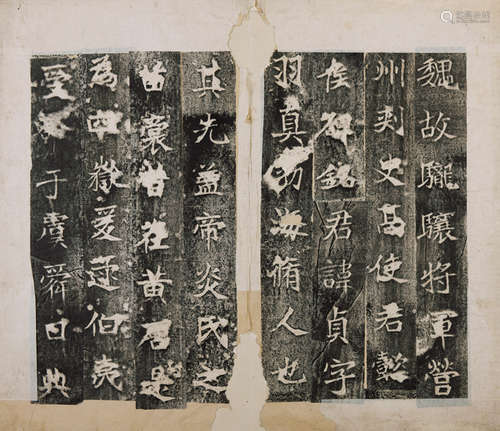 魏故龍驤將軍營
州刺史高使君懿
侯碑銘君諱貞字
羽真勃海脩人也
其先蓋帝炎氏之
苗裔昔在黃唐是
為四嶽爰逮伯夷
受命于虞舜曰典